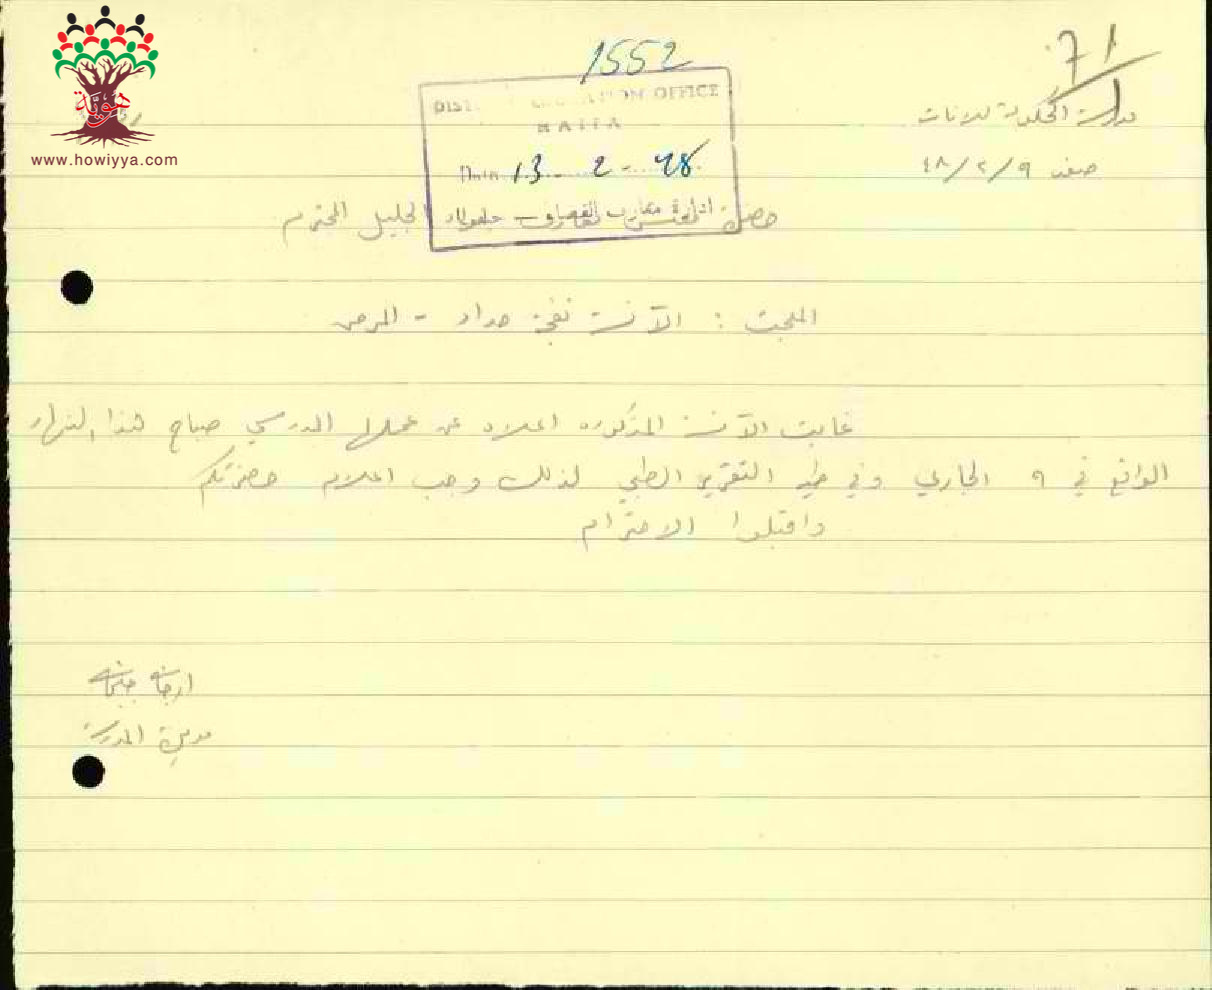 هوية
www.howiyya.com
1552
71
DIST EDUCATION OFFICE
HAIFA
Date 13 - 2 - 48
ادارة معارف القضاء حيفا
مدرسة الحكومة للبنات
صفد ٩/٢/٤٨
حضرة مفتش المعارف الجليل المحترم
المبحث : الآنسة نفجة حداد - المرض
غابت الآنسة المذكوره اعلاه عن عملها المدرسي صباح هذا النهار
الواقع في ٩ الجاري وفي طيه التقرير الطبي لذلك وجب اعلام حضرتكم
واقبلوا الاحترام
مديرة المدرسة